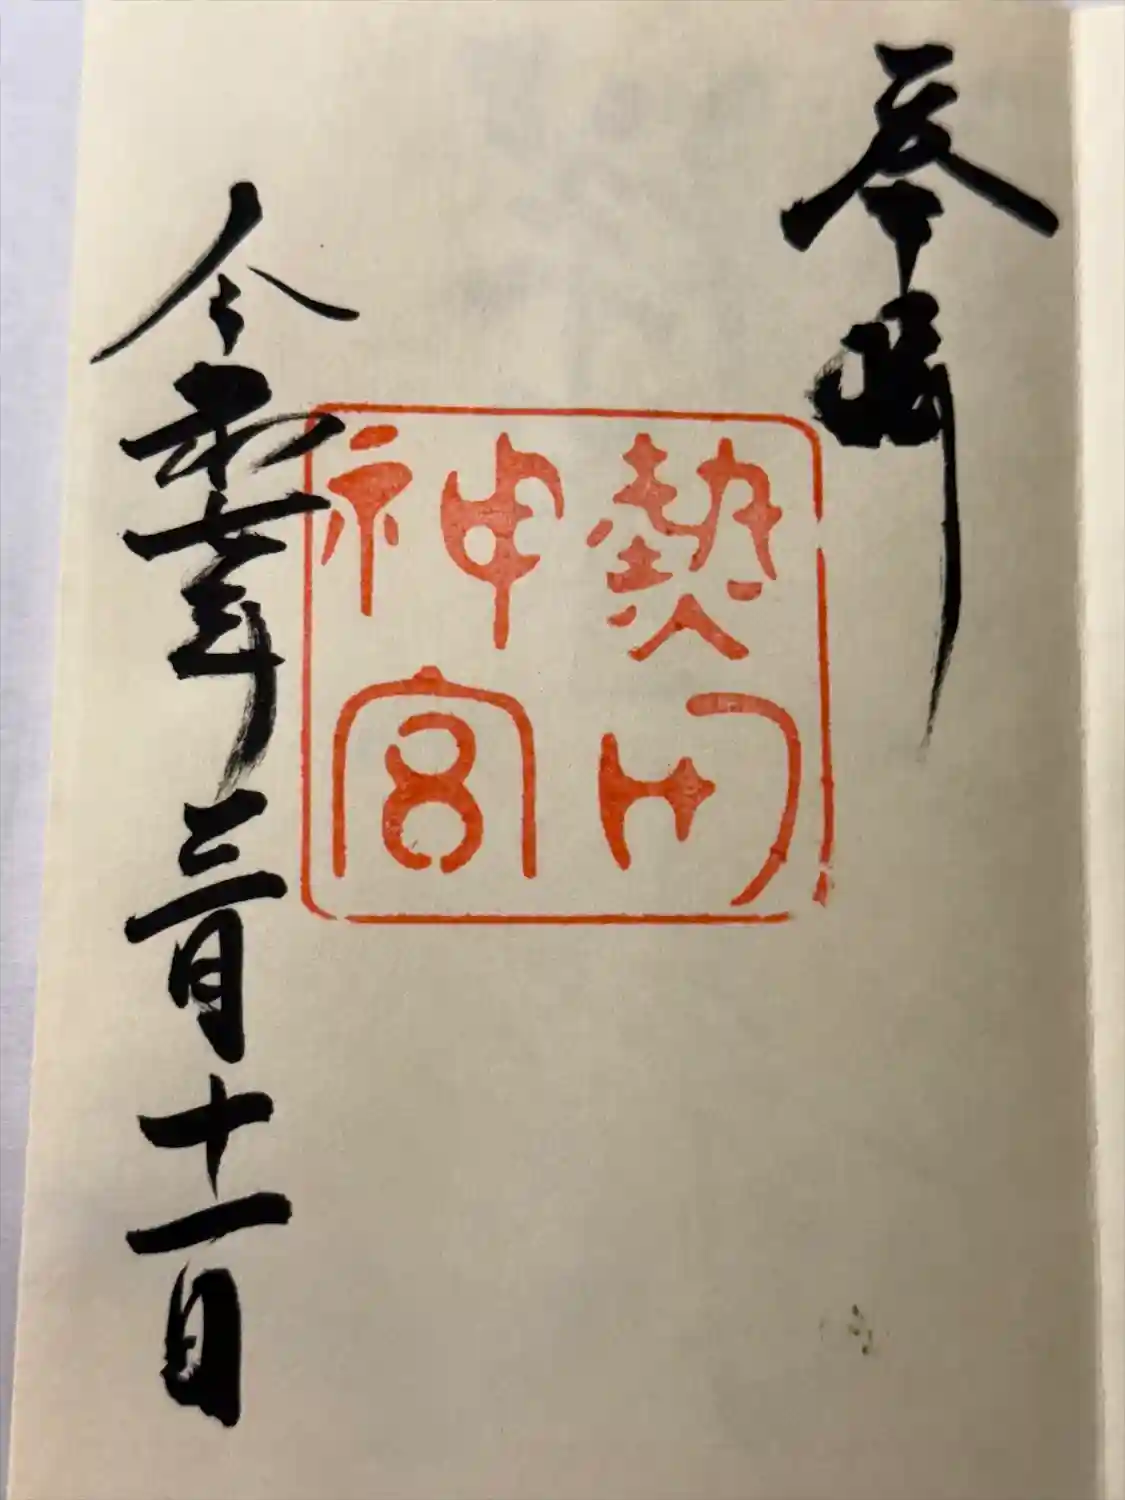 奉拝
熱田
神宮
令和七年三月十一日